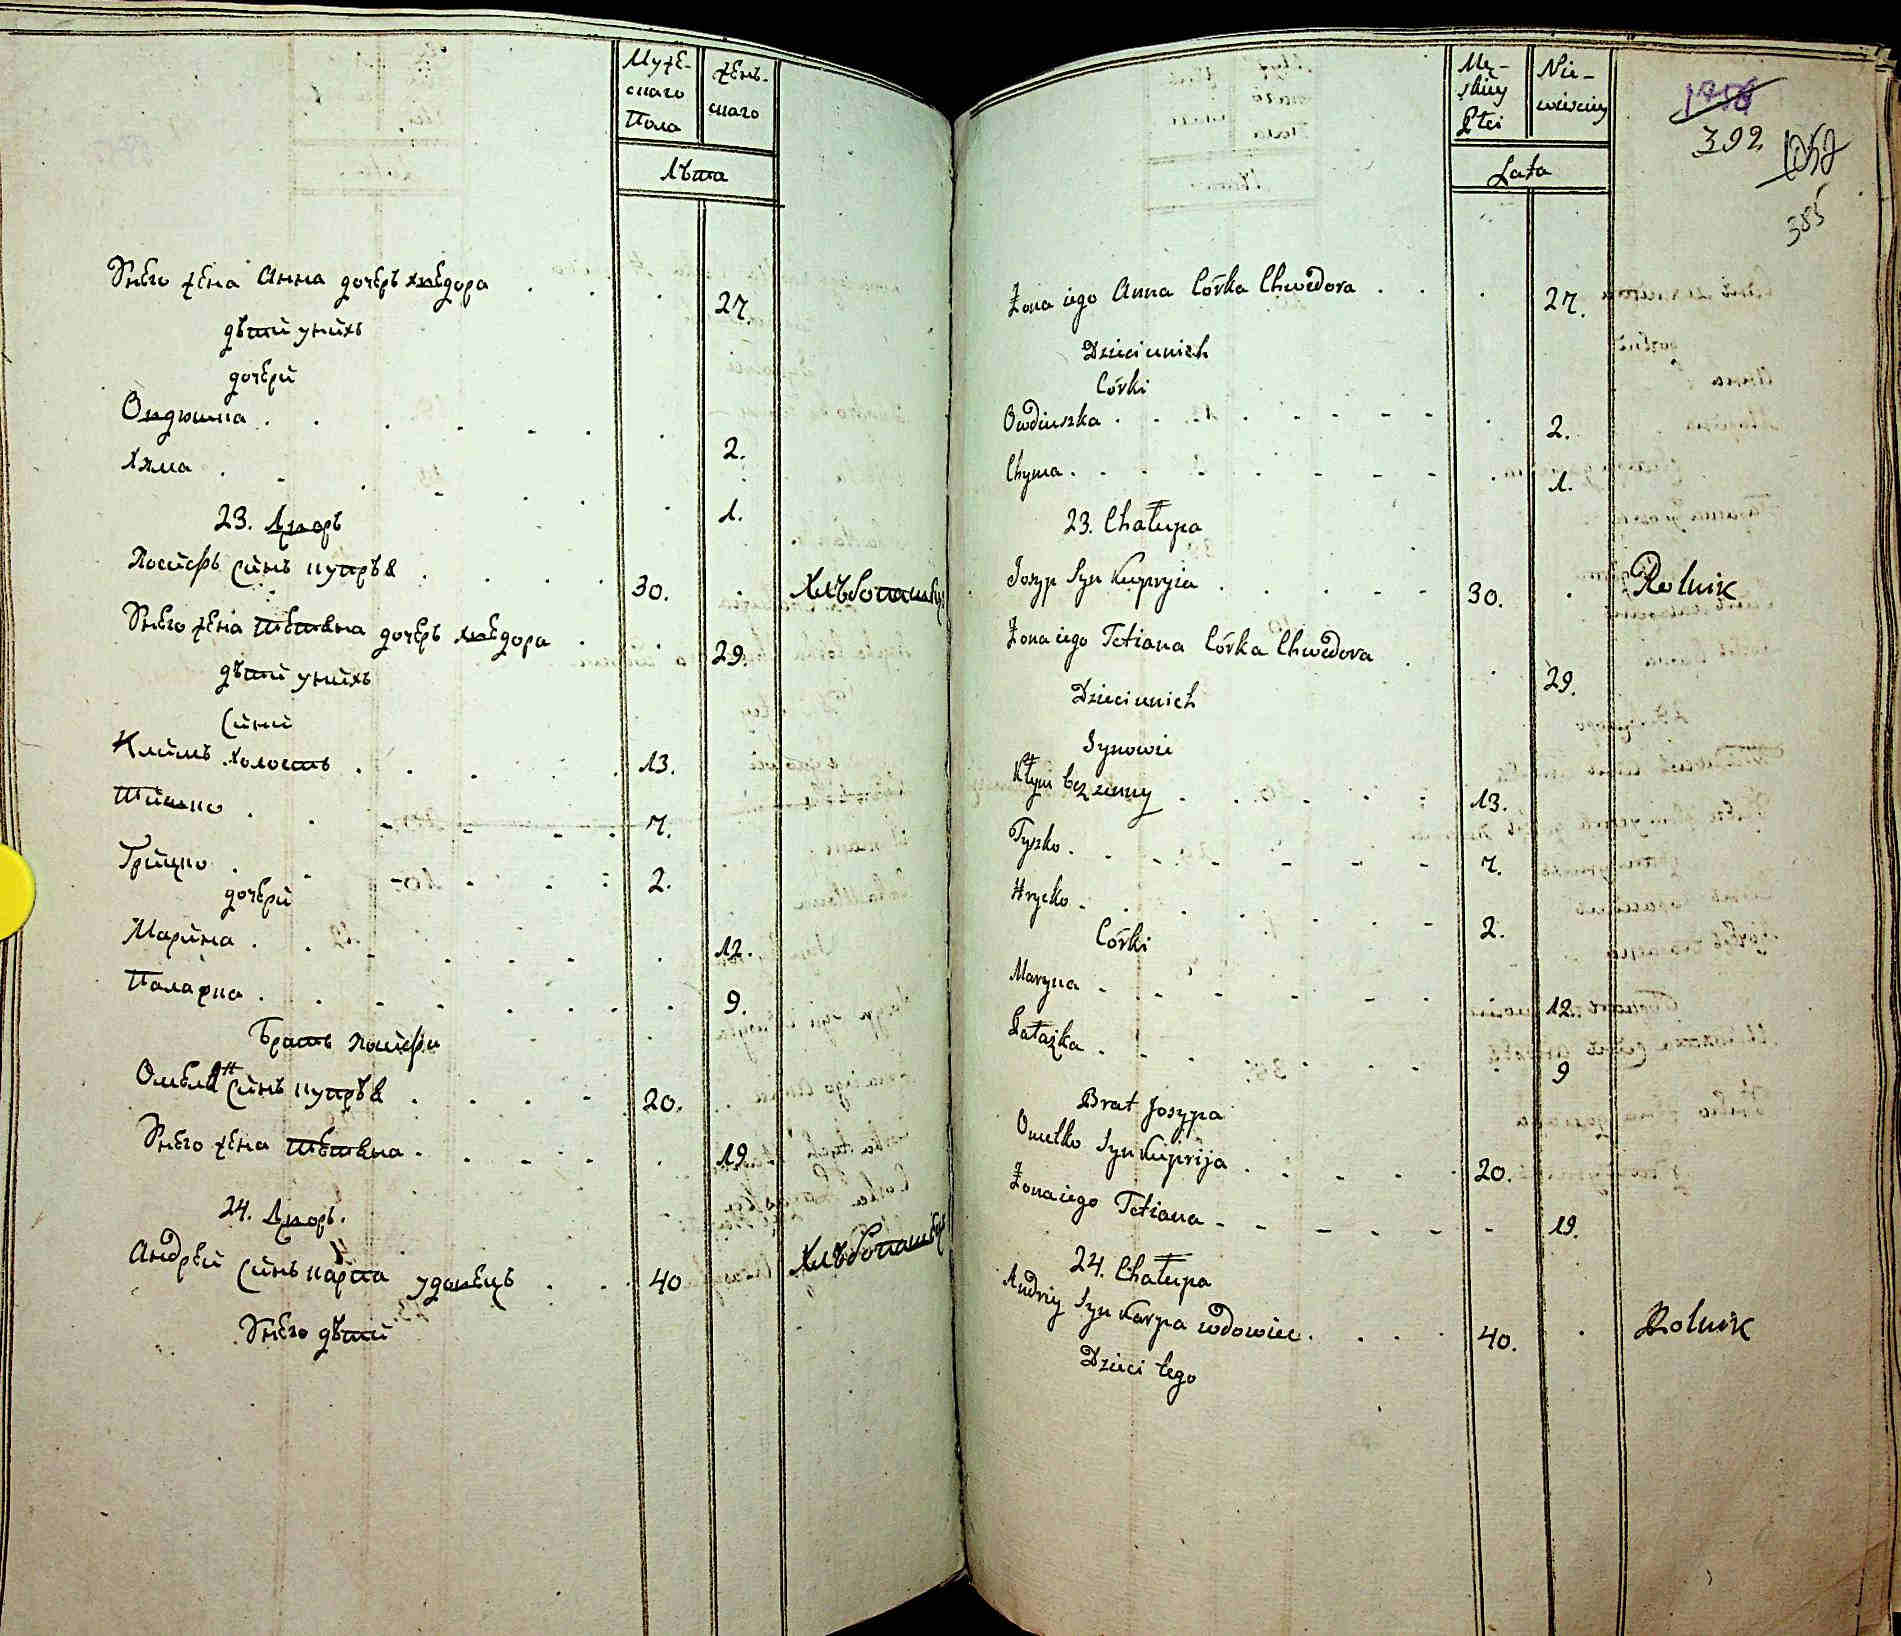 Муже-
скаго
Пола
жень-
скаго
Лѣта
Унего жена Анна дочерь хведора 27.
дѣтй унйхъ
дочерй
Овдюшка 2.
Хяма 1.
23. Дворъ
Йосйфъ сйнъ купрѣя 30. Хлѣбопашец
Унего жена тетяна дочерь хведора 29.
дѣтй унйхъ
Сйнй
Клймъ холостъ 13.
Тйшко 7.
Грйцко 2.
дочерй
Марйна 12.
Палажка 9.
Братъ Йосйфа
Омелян Сйнъ купрѣя 20.
Унего жена тетяна 19
24. Дворъ.
Андрей сйнъ карпа удовецъ 40 Хлѣбопашец
Унего дѣтй
Mę-
skiey
Płci
Nie-
wieściey
Lata
1756
392
1052
385
Żona iego Anna Córka Chwedora 27.
Dzieci unich
Córki
Owdiuszka 2.
Chyma 1.
23. Chałupa
Josyp Syn Kupryia 30. Rolnik
Żona iego Tetiana Córka Chwedora 29.
Dzieci unich
Synowie
Kłym bezzenny 13.
Tyszko 7.
Hrycko 2.
Córki
Maryna 12.
Pałażka 9
Brat Josypa
Omelko Syn Kuprija 20.
Żona iego Tetiana 19.
24. Chałupa
Andriy Syn Karpa wdowiec 40. Rolnik
Dzieci tego